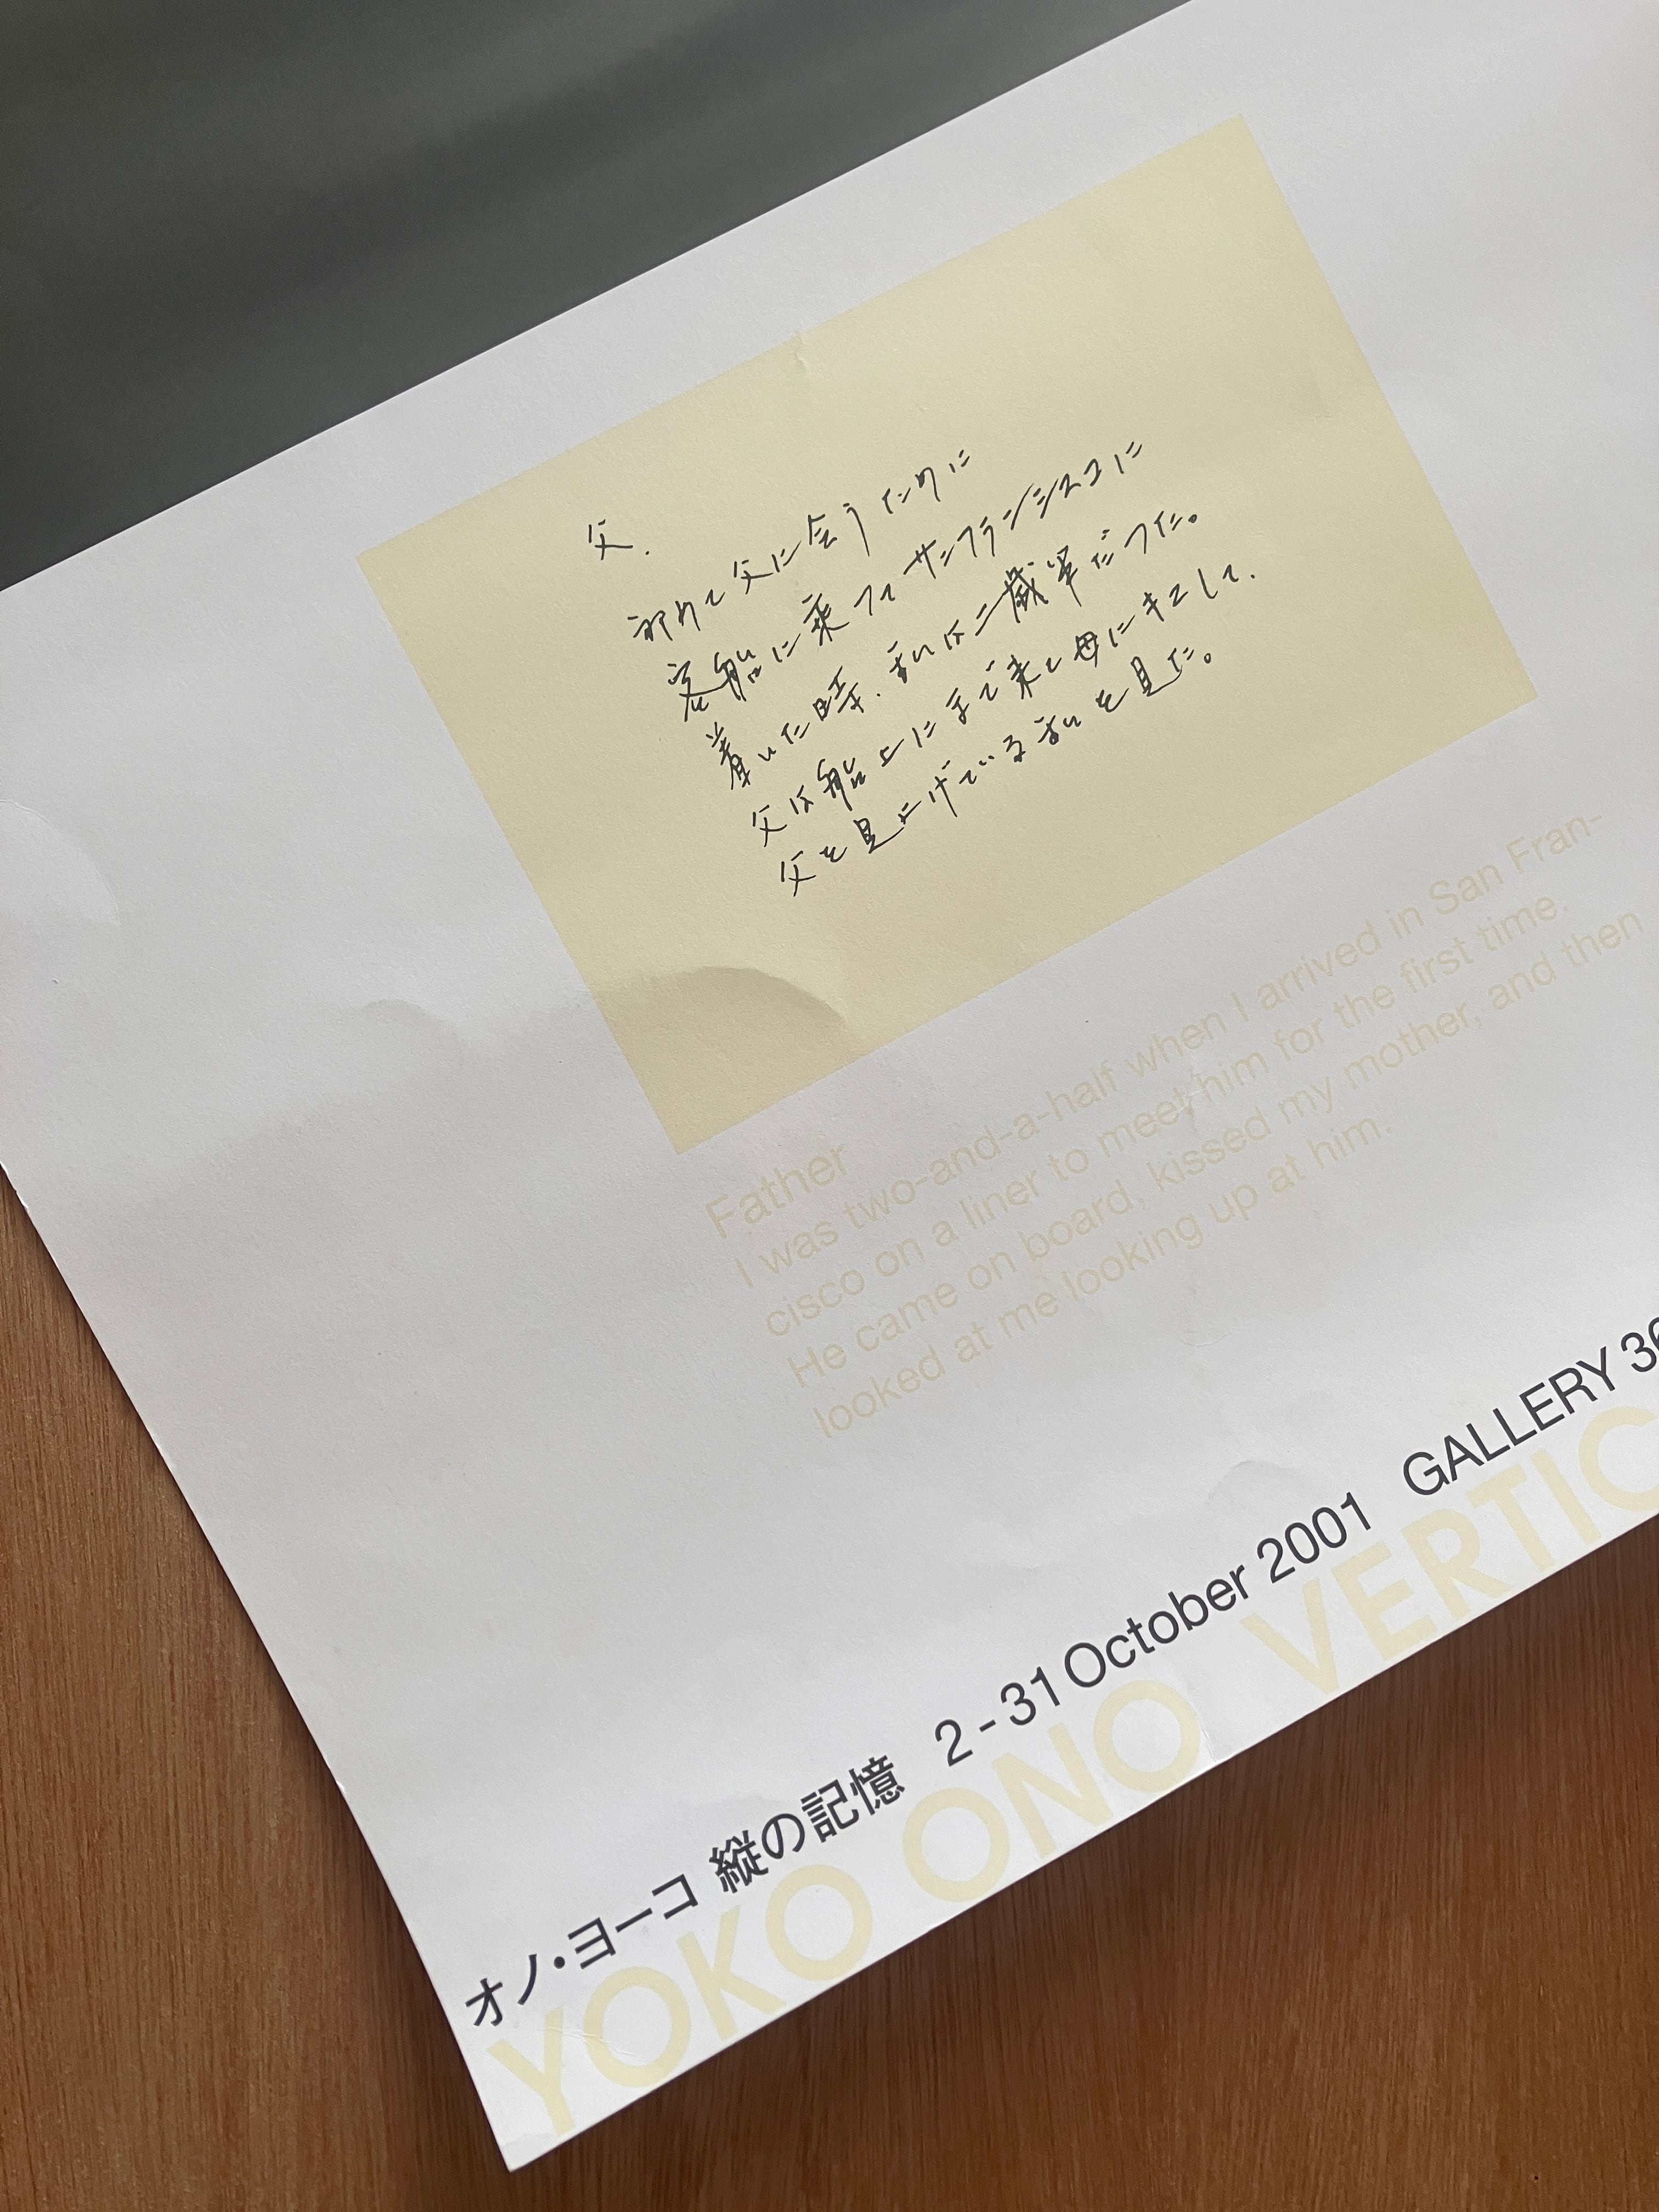 父.
初めて父に会うために
客船に乗ってサンフランシスコに
着いた時、私は二歳半だった。
父は船上にまで来て母にキスして、
父を見上げている私を見た。
Father
I was two-and-a-half when I arrived in San Fran-
cisco on a liner to meet him for the first time.
He came on board, kissed my mother, and then
looked at me looking up at him.
オノ・ヨーコ 縦の記憶 2 - 31 October 2001 GALLERY
YOKO ONO